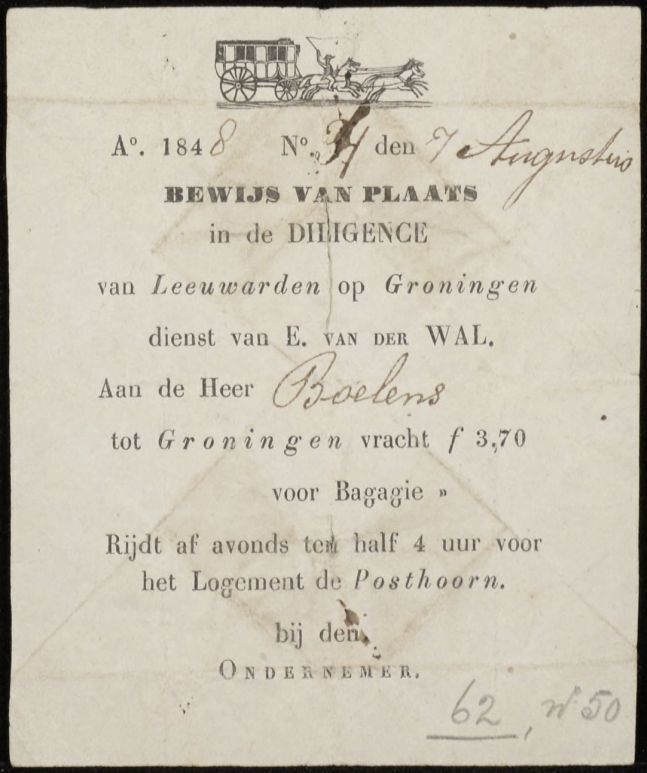 Aº. 1848 Nº. den 7 Augustus
BEWIJS VAN PLAATS
in de DILIGENCE
van Leeuwarden op Groningen
dienst van E. VAN DER WAL.
Aan de Heer Boelens
tot Groningen vracht f 3,70
voor Bagagie »
Rijdt af avonds ten half 4 uur voor
het Logement de Posthoorn.
bij den
ONDERNEMER.
62, nº 50